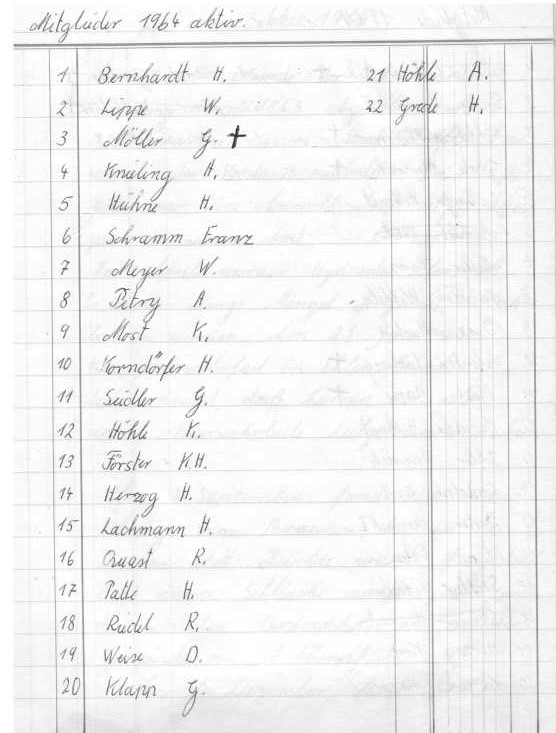 Mitglieder 1964 aktiv.
1 Bernhardt H.
2 Lippe W.
3 Möller G. ✝
4 Knieling H.
5 Hühne H.
6 Schramm Franz
7 Meyer W.
8 Petry A.
9 Most K.
10 Korndörfer H.
11 Seidler G.
12 Höhle K.
13 Förster K.H.
14 Herzog H.
15 Lachmann H.
16 Quast R.
17 Patte H.
18 Riedel R.
19 Weise D.
20 Klapp G.
21 Höhle A.
22 Grede H.